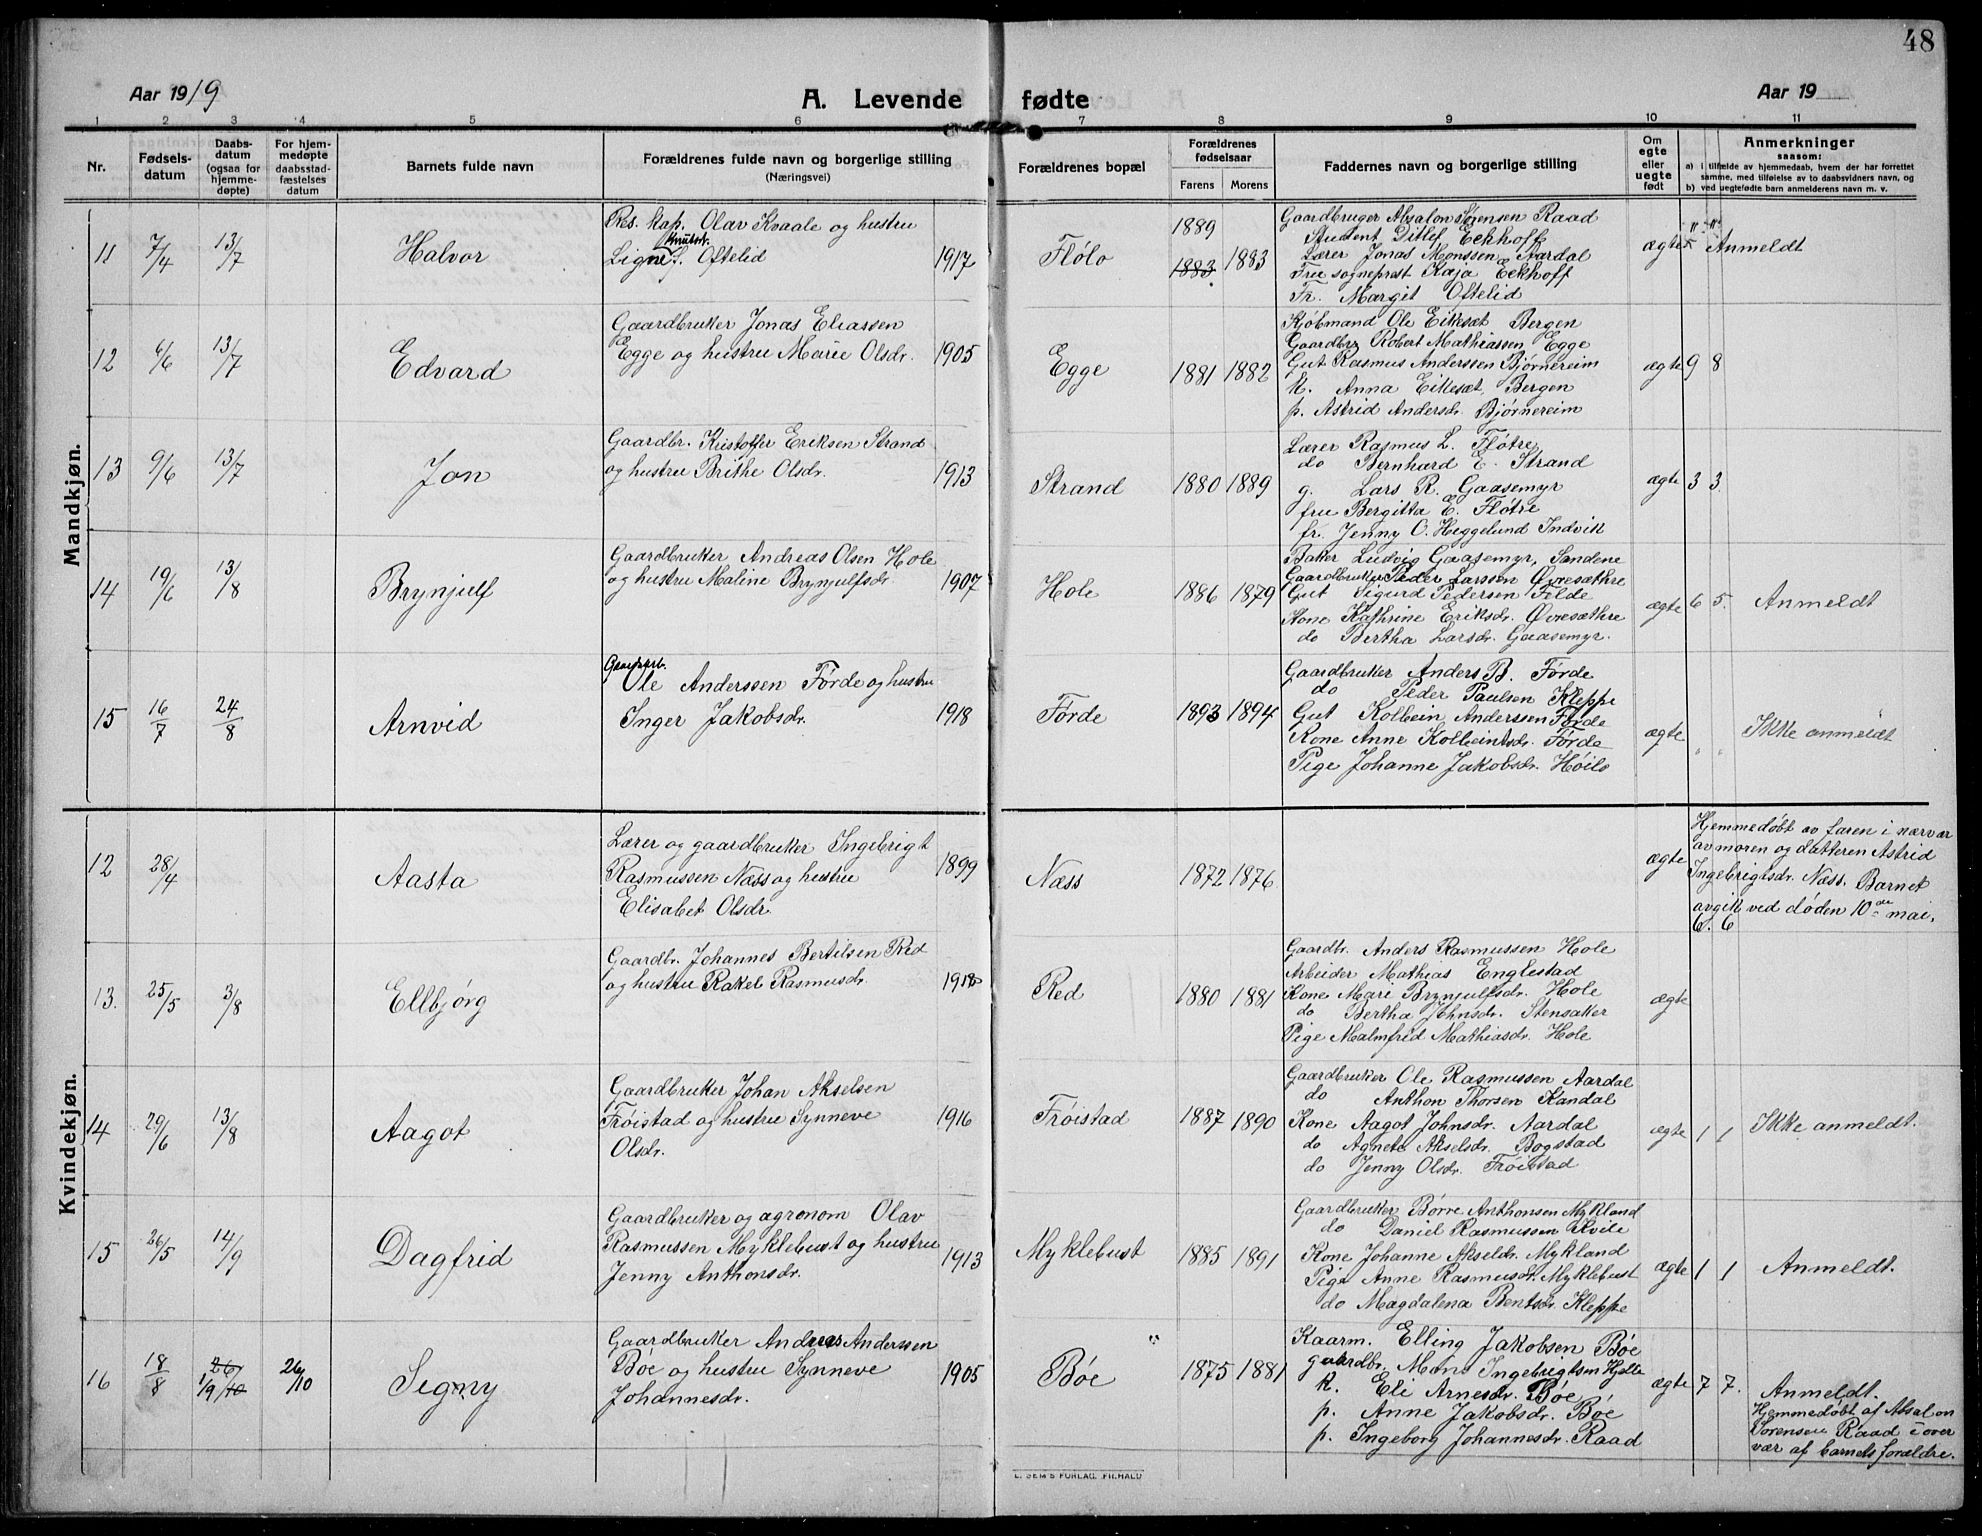 48
Aar 1919
A. Levende fødte
Aar 19
1 2 3 4 5 6 7 8 9 10 11
Nr.
Fødsels-
datum
Daabs-
datum
(ogsaa for
hjemme-
døpte)
For hjem-
medøpte
daabsstad-
fæstelses
datum
Barnets fulde navn
Forældrenes fulde navn og borgerlige stilling
(Næringsvei)
Forældrenes bopæl
Forældrenes
fødselsaar
Farens Morens
Faddernes navn og borgerlige stilling
Om
egte
eller
uegte
født
Anmerkninger
saasom:
a) i tilfælde av hjemmedaab, hvem der har forrettet
samme, med tilføielse av to daabsvidners navn, og
b) ved uegtefødte barn anmelderens navn m. v.
Mandkjøn.
11 7/4 13/7 Halvor
Res. kap. Olav Kvaale og hustru
Knutsdr.
Signe S. Oftelid 1917
Flölo
1889
1883 1883
Gaardbruger Absalon Sørensen Raad
Student Ditlef Eckhoff
Lærer Jonas Monssen Aardal
Frue sogneprest Kaja Eckhoff
Fr. Margit Oftelid
ægte " "
5 Anmeldt
12 6/6 13/7 Edvard
Gaardbruker Jonas Eliassen
Egge og hustru Marie Olsdr. 1905
Egge
1881 1882
Kjøbmand Ole Eikesæt Bergen
Gaardbr. Robert Mathiassen Egge
Gut Rasmus Anderssen Bjørnereim
k. Anna Eikesæt, Bergen
p. Astrid Andersdr. Bjørnereim
ægte 9 8
13 9/6 13/7 Jon
Gaardbr. Kristoffer Eriksen Strand
og hustru Brithe Olsdr. 1913
Strand
1880 1889
Lærer Rasmus L. Fløtre
do Bernhard E. Strand
g. Lars R. Gaasemyr
fru Bergitta E. Fløtre
fr. Jenny O. Heggelund Indvik
ægte 3 3
14 19/6 13/8 Brynjulf
Gaardbruker Andreas Olsen Hole
og hustru Maline Brynjulfsdr. 1907
Hole
1886 1879
Baker Ludvig Gaasemyr, Sandene
Gaardbruker Peder Larssen Øvresæthre
Gut Sigurd Pedersen Felde
Kone Kathrine Eriksdr. Øvresæthre
do Bertha Larsdr. Gaasemyr.
ægte 6 5. Anmeldt
15 16/7 24/8 Arnvid
Ole Anderssen Førde og hustru
Inger Jakobsdr. 1918
Førde
1893 1894
Gaardbruker Anders B. Førde
do Peder Paulsen Kleppe
Gut Kolbein Anderssen Førde
Kone Anne Kolbeintsdr. Førde
Pige Johanne Jakobsdr. Høilo
ægte " " Ikke anmeldt
Kvindekjøn.
12 28/4 Aasta
Lærer og gaardbruker Ingebrigt
Rasmussen Næss og hustru
Elisabet Olsdr. 1899
Næss
1872 1876
ægte
Hjemmedøbt av faren i nærvær
av moren og datteren Astrid
Ingebrigtsdr. Næss. Barnet
avgik ved døden 10de mai.
6. 6
13. 25/5 3/8 Ellbjørg
Gaardbr. Johannes Bertilsen Red
og hustru Rakel Rasmusdr. 1918
Red
1880 1881
Gaardbr. Anders Rasmussen Hole
Arbeider Mathias Englestad
Kone Mari Brynjulfsdr. Hole
do Bertha Johnsdr. Stensaker
Pige Malmfrid Mathiasdr. Hole
ægte
14 29/6 13/8 Aagot
Gaardbruker Johan Akselsen
Frøistad og hustru Synneve
Olsdr. 1916
Frøistad
1887 1890
Gaardbruker Ole Rasmussen Aardal
do Anthon Thorsen Kandal
Kone Aagot Johnsdr. Aardal
do Agnete Akselsdr. Bogstad
do Jenny Olsdr. Frøistad
ægte 1 1 Ikke anmeldt.
15 26/5 14/9 Dagfrid
Gaardbruker og agronom Olav
Rasmussen Myklebust og hustru
Jenny Anthonsdr. 1913
Myklebust
1885 1891
Gaardbruker Børre Anthonsen Mykland
do Daniel Rasmussen Kvile
Kone Johanne Akseldr. Mykland
Pige Anne Rasmusdr. Myklebust
do Magdalena Bentsdr. Kleppe
ægte 1 1 Anmeldt.
16 18/8 26/10 1/9 26/10 Signy
Gaardbruker Andreas Anderssen
Bøe og hustru Synneve
Johannesdr. 1905
"
Bøe
1875 1881
Kaarm. Elling Jakobsen Bøe
gaardbr. Mons Ingebrigtsen Hjelle
k. Eli Arnesdr. Bøe
p. Anne Jakobsdr. Bøe
p. Ingeborg Johannesdr. Raad
ægte 7 7. Anmeldt.
Hjemmedøbt af Absalon
Sørensen Raad i over
vær af barnets forældre.
E. SEM'S FORLAG, FR.HALD